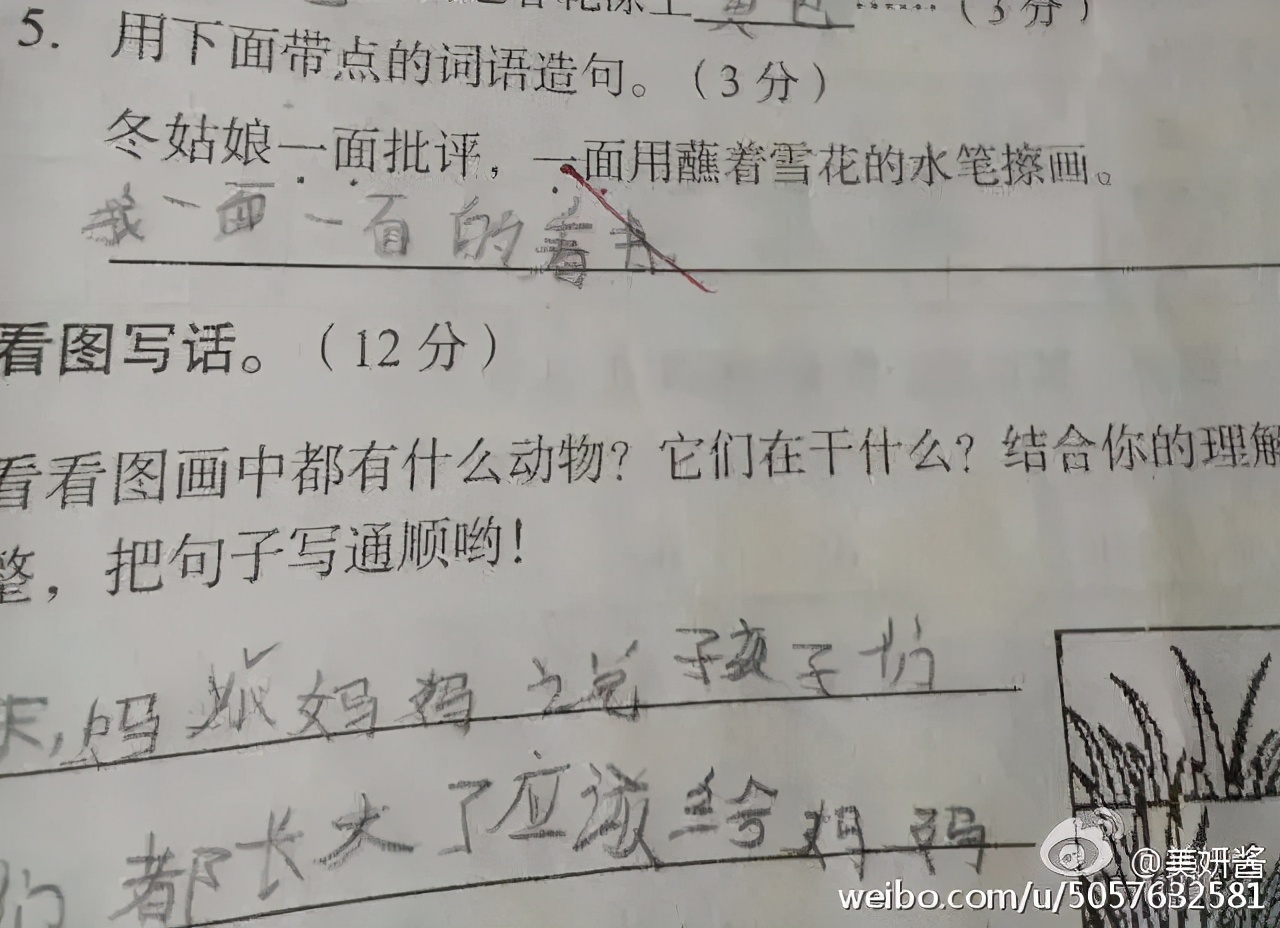 黄色………（3分）
5. 用下面带点的词语造句。（3分）
冬姑娘一面批评，一面用蘸着雪花的水笔擦画。
我一面一面的看书
看图写话。（12分）
看看图画中都有什么动物？它们在干什么？结合你的理解
整，把句子写通顺哟！
天,妈 妈妈说孩子们
们都长大了应该给妈妈
@美妍酱
weibo.com/u/5057632581